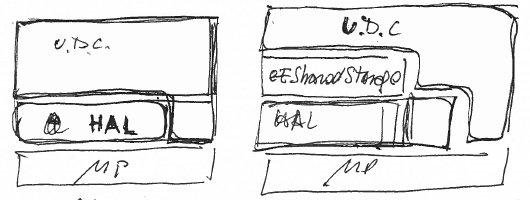 U.D.C.
HAL
MP
U.D.C
EESharedStorage
HAL
MP